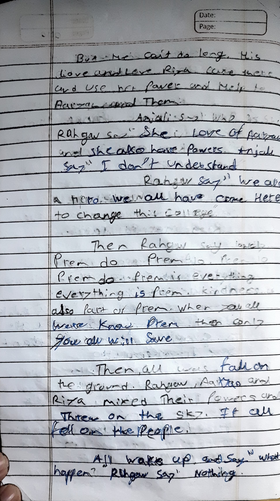 Date:
Page:
But He can't do long. His
Love and Love Riya
and use her Power and Help to
and Them
Anjali say who is
Rahgav say "She is Love of
and she also have Powers Anjali
Say "I don't understand
Rahgav Say "we are
a hero. we all have come Here
to change this College
Then Rahgav
Prem do Prem
Prem do Prem is everything
everything is Prem. kindness
also Part of Prem. when you all
Know Prem then only
You all will Save
Then all was fall on
the ground. Rahgav and
Riya mixed Their Powers and
Threw on the sky. It all
fell on the People.
All wake up and Say "what
happen? Rahgav Say Nothing.